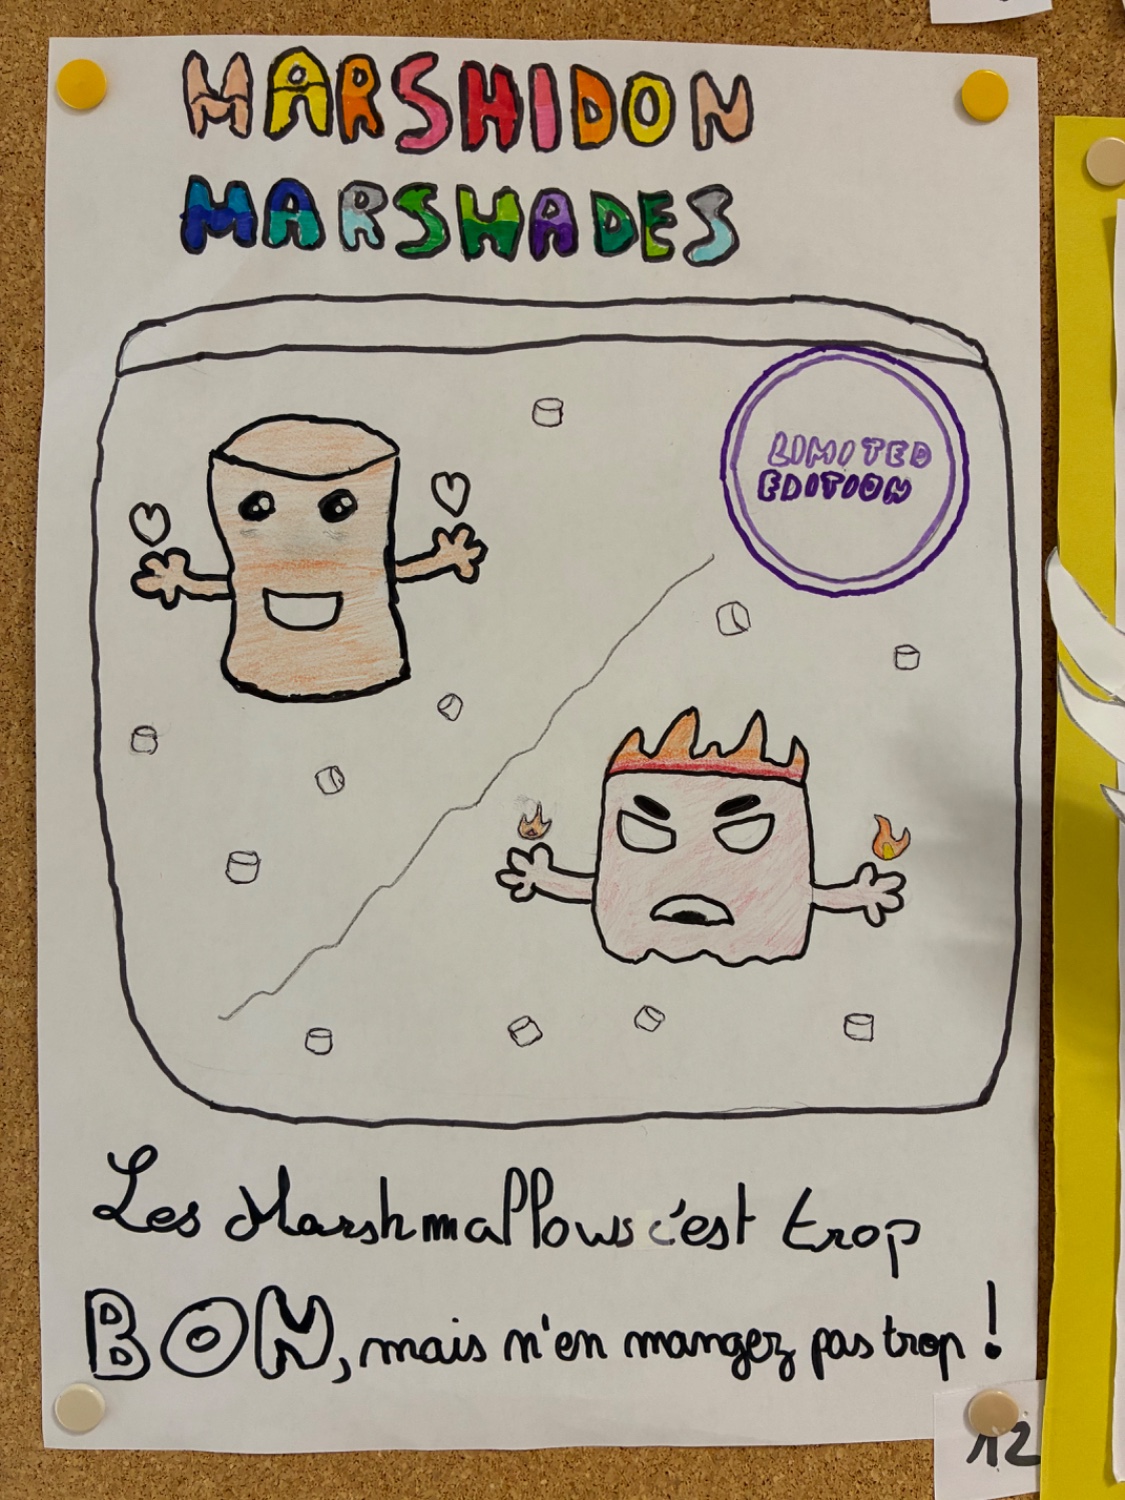 MARSHIDON
MARSHADES
LIMITED
EDITION
Les Marshmallows c'est trop
BON, mais n'en mangez pas trop !
12